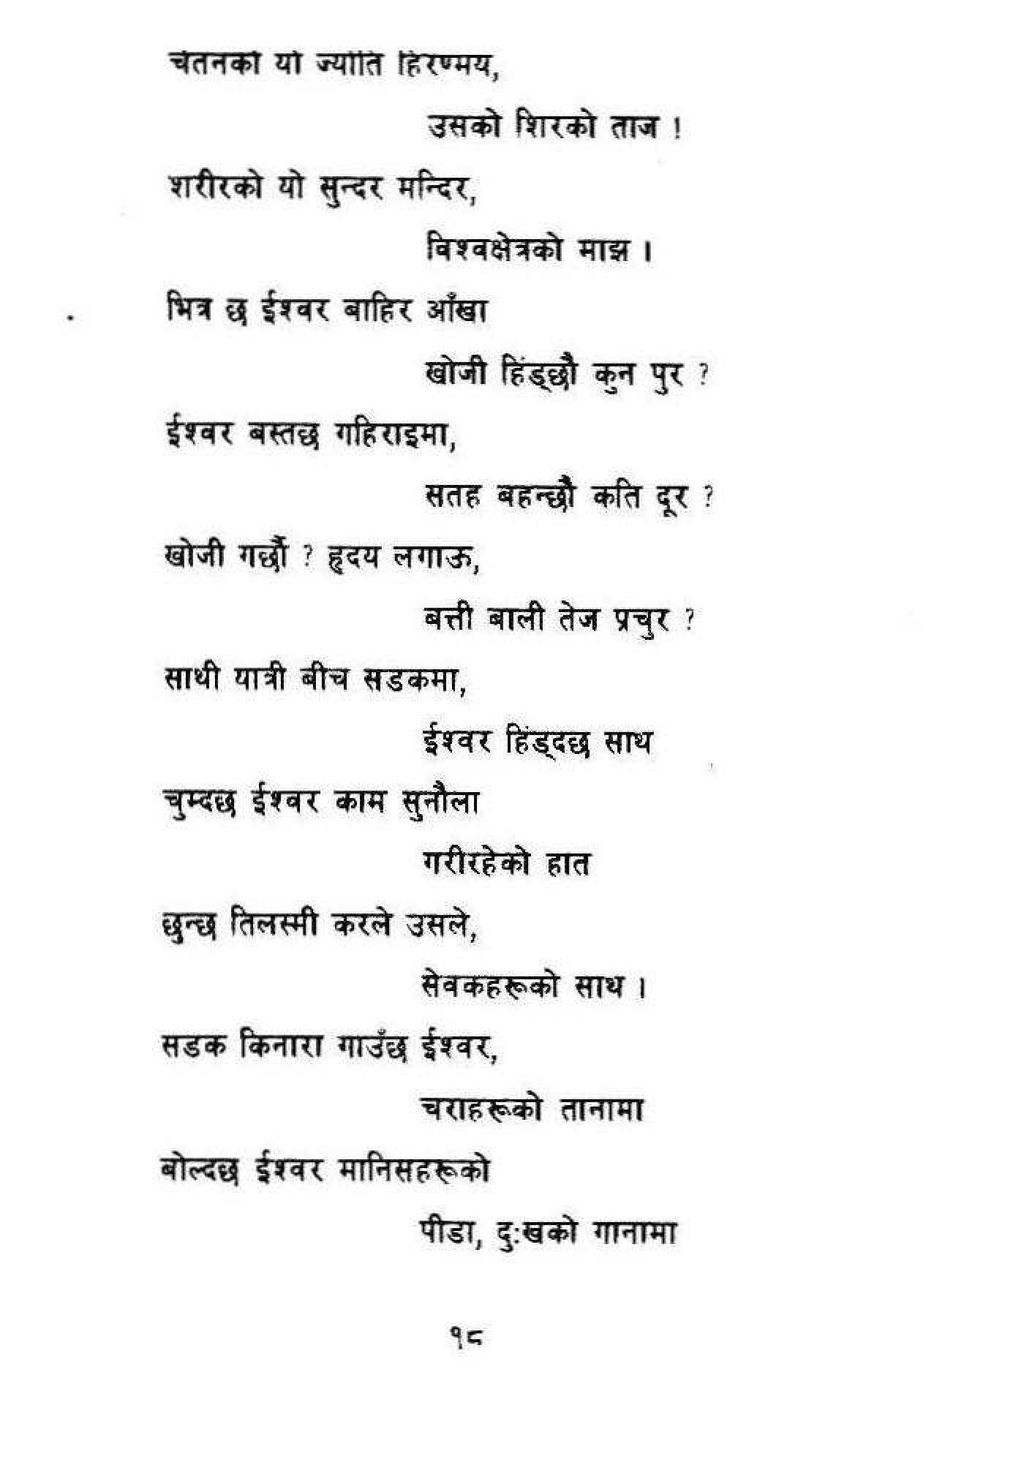 चेतनको यो ज्योति हिरण्मय,
उसको शिरको ताज !
शरीरको यो सुन्दर मन्दिर,
विश्वक्षेत्रको माझ ।
भित्र छ ईश्वर बाहिर आँखा
खोजी हिंड्छौ कुन पुर ?
ईश्वर बस्तछ गहिराइमा,
सतह बहन्छौ कति दूर ?
खोजी गर्छौ ? हृदय लगाऊ,
बत्ती बाली तेज प्रचुर ?
साथी यात्री बीच सडकमा,
ईश्वर हिंड्दछ साथ
चुम्दछ ईश्वर काम सुनौला
गरीरहेको हात
छुन्छ तिलस्मी करले उसले,
सेवकहरूको साथ ।
सडक किनारा गाउँछ ईश्वर,
चराहरूको तानामा
बोल्दछ ईश्वर मानिसहरूको
पीडा, दुःखको गानामा
१८